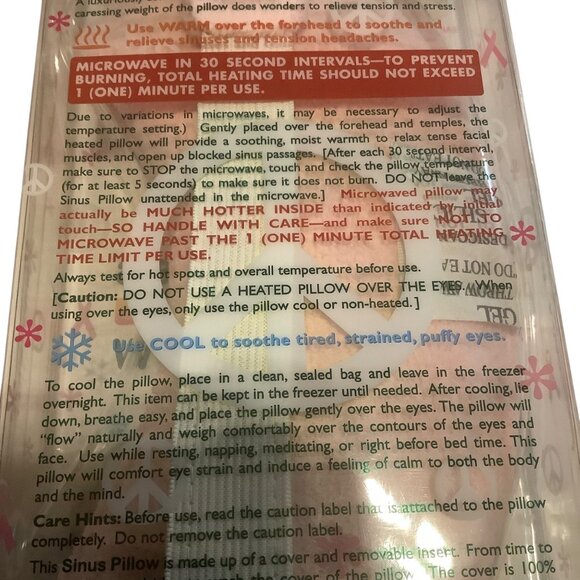 A luxuriously
caressing weight of the pillow does wonders to relieve tension and stress.
Use WARM over the forehead to soothe and
relieve sinuses and tension headaches.
MICROWAVE IN 30 SECOND INTERVALS—TO PREVENT
BURNING, TOTAL HEATING TIME SHOULD NOT EXCEED
1 (ONE) MINUTE PER USE.
Due to variations in microwaves, it may be necessary to adjust the
temperature setting.) Gently placed over the forehead and temples, the
heated pillow will provide a soothing, moist warmth to relax tense facial
muscles, and open up blocked sinus passages. [After each 30 second interval,
make sure to STOP the microwave, touch and check the pillow temperature
(for at least 5 seconds) to make sure it does not burn. DO NOT leave the
Sinus Pillow unattended in the microwave.] Microwaved pillow may
actually be MUCH HOTTER INSIDE than indicated by initial
touch—SO HANDLE WITH CARE—and make sure NOT TO
MICROWAVE PAST THE 1 (ONE) MINUTE TOTAL HEATING
TIME LIMIT PER USE.
Always test for hot spots and overall temperature before use.
[Caution: DO NOT USE A HEATED PILLOW OVER THE EYES. When
using over the eyes, only use the pillow cool or non-heated.]
DO NOT EA
THROW AW
GEL
Use COOL to soothe tired, strained, puffy eyes.
To cool the pillow, place in a clean, sealed bag and leave in the freezer
overnight. This item can be kept in the freezer until needed. After cooling, lie
down, breathe easy, and place the pillow gently over the eyes. The pillow will
"flow" naturally and weigh comfortably over the contours of the eyes and
face. Use while resting, napping, meditating, or right before bed time. This
pillow will comfort eye strain and induce a feeling of calm to both the body
and the mind.
Care Hints: Before use, read the caution label that is attached to the pillow
completely. Do not remove the caution label.
This Sinus Pillow is made up of a cover and removable insert. From time to
the cover of the pillow. The cover is 100%